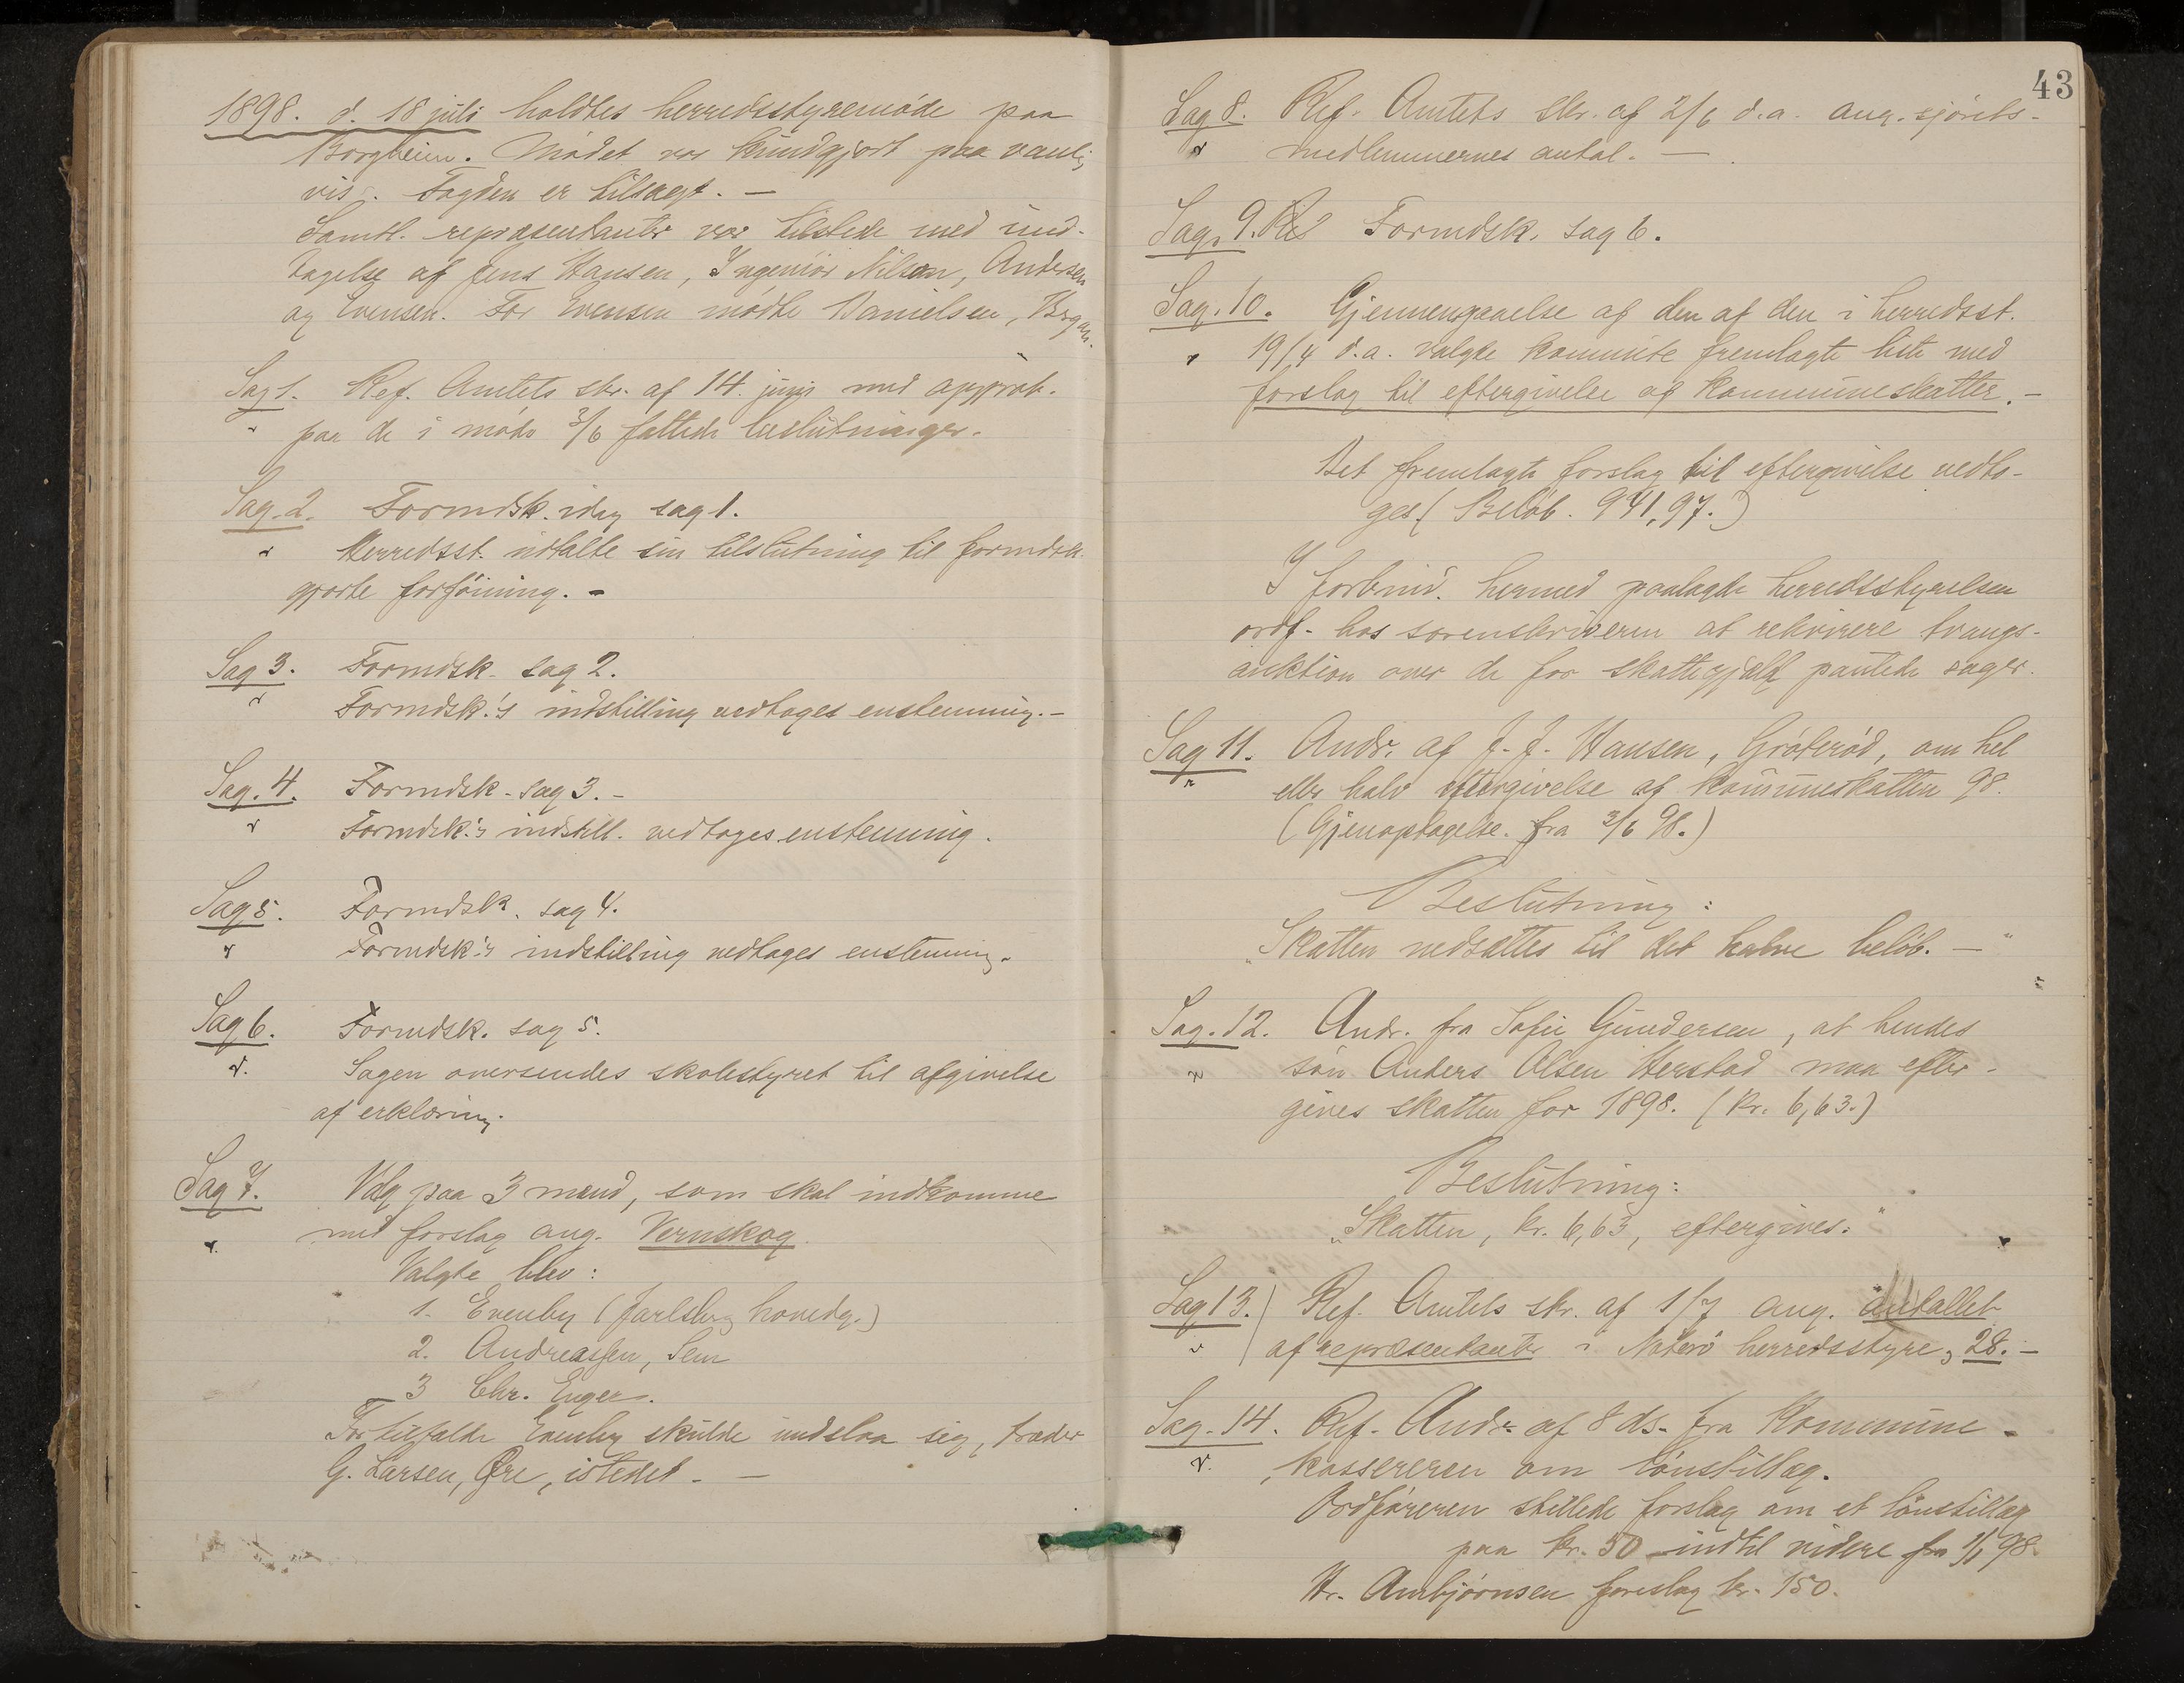 1898. d. 18 juli holdtes herredsstyremöde paa
Borgheim. Mödet var kundgjort paa vanlig
vis. Fogden er tilsagt. —
Samtl. repræsentanter var tilstede med und-
tagelse af Jens Hansen, Ingeniör Nilsen, Andersen
og Evensen. For Evensen mödte Danielsen, Bergan.
Sag 1. Ref. Amtets skr. af 14. juni med approb.
paa de i möde 3/6 fattede beslutninger.
Sag. 2. Formdsk. idag sag 1.
Herredsst. udtalte sin tilslutning til formdsk.
gjorte forföining. –
Sag 3. Formdsk. sag 2.
Formdsk.'s indstilling vedtoges enstemmig. –
Sag. 4. Formdsk. sag 3. –
Formdsk.'s indstill. vedtoges enstemmig.
Sag 5. Formdsk. sag 4.
Formdsk.'s indstilling vedtoges enstemmig.
Sag 6. Formdsk. sag 5.
Sagen oversendes skolestyret til afgivelse
af erklæring.
Sag 7. Valg paa 3 mænd, som skal indkomme
med forslag ang. Vernskog.
Valgte blev:
1. Evenby (Jarlsberg hovedg.)
2. Andreassen, Sem
3 Chr. Enger.
For tilfælde Evenby skulde undslaa sig, træder
G. Larsen, Øre, istedet. —
43
Sag 8. Ref. Amtets skr. af 2/6 d.a. ang. sjörets-
medlemmernes antal. —
Sag. 9. Formdsk. sag 6.
Sag. 10. Gjennemgaaelse af den af den i herredsst.
19/4 d.a. valgte kommite fremlagte liste med
forslag til eftergivelse af kommuneskatter. –
Det fremlagte forslag til eftergivelse vedto-
ges. (Belöb. 941,97.)
I forbind. hermed paalagde herredsstyrelsen
ordf. hos sorenskriveren at rekvirere tvangs-
auktion over de for skattegjæld pantede sager.
Sag 11. Andr. af J. J. Hansen, Gröteröd, om hel
eller halv eftergivelse af kommuneskatten 98.
(Gjenoptagelse fra 3/6 98.)
Beslutning:
„Skatten nedsættes til det halve belöb. —"
Sag. 12. Andr. fra Sofie Gundersen, at hendes
sön Anders Olsen Herstad maa efter-
gives skatten for 1898. (kr. 6,63.)
Beslutning:
„Skatten, kr. 6,63, eftergives."
Sag 13. Ref. Amtets skr. af 1/7 ang. antallet
af repræsentanter i Nöterö herredsstyre, 28. –
Sag. 14. Ref. Andr. af 8 ds. fra Kommune-
kassereren om lönstillæg.
Ordföreren stillede forslag om et lönstillæg
paa kr. 50 indtil videre fra 1/1 98.
Hr. Ambjörnsen foreslog kr. 150.